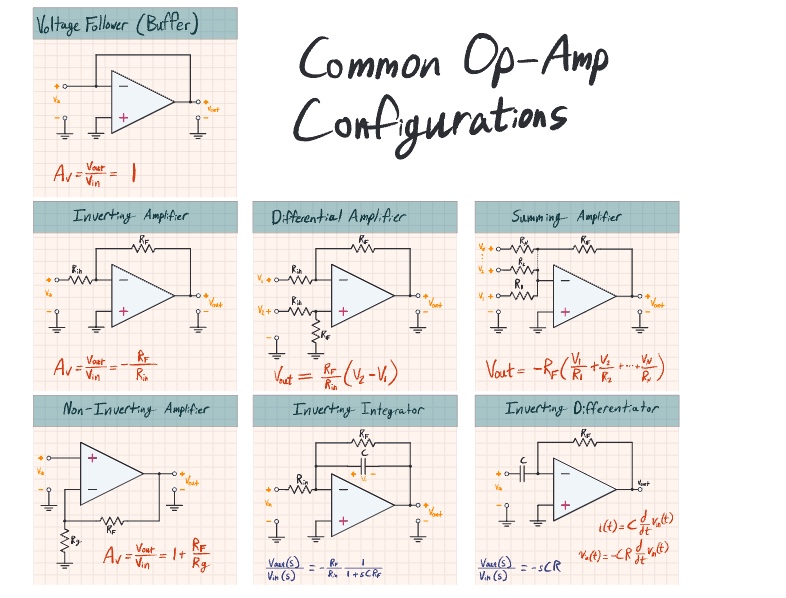 Voltage Follower (Buffer)
Common Op-Amp
Configurations
+ − +
Vin − + Vout
− −
Av = Vout/Vin = 1
Inverting Amplifier
RF
Rin
+ − +
Vin + Vout
− −
Av = Vout/Vin = -RF/Rin
Differential Amplifier
RF
Rin
V1 + −
Rin
V2 + + + Vout
RF
− −
Vout = RF/Rin (V2 - V1)
Summing Amplifier
VN + RN RF
V2 + R2 −
V1 + R1 + + Vout
− −
Vout = -RF(V1/R1 + V2/R2 + ... + VN/RN)
Non-Inverting Amplifier
+ + +
Vin − Vout
− −
RF
Rg
Av = Vout/Vin = 1 + RF/Rg
Inverting Integrator
RF
C
Rin + −
+ − +
Vin + Vout
− −
Vout(s)/Vin(s) = -RF/Rin 1/(1+sCRF)
Inverting Differentiator
RF
C
+ − Vout
Vin +
−
i(t) = C d/dt Vin(t)
Vo(t) = -CR d/dt Vin(t)
Vout(s)/Vin(s) = -sCR